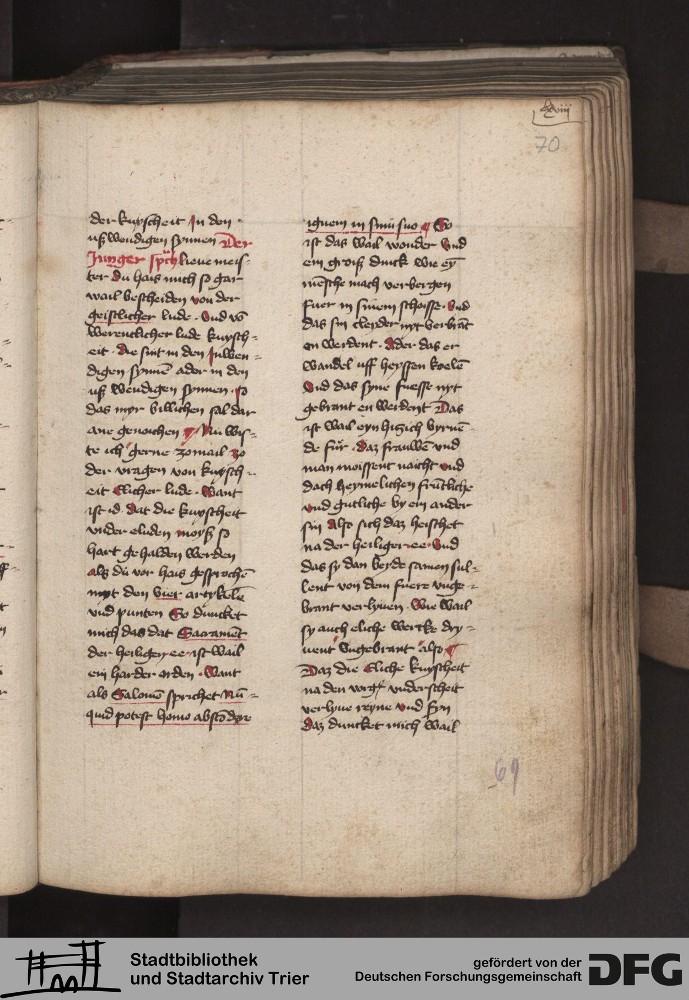 lxviii
70
der kuyscheit In den
uß wendigen synnen Der
Junger sp̄ch lieue meis-
ter du hais mich so gar
wail bescheiden von der
geistlicher lude. Vnd vō
werentlicher lude kuysch-
eit. die sint in den Inwen-
digen synnē ader in den
uß wendigen synnen. so
das myr billichen sal dar
ane genoichen Nu wis-
te ich gerne zomail zo
der vragen von kuysch-
eit Elicher lude. Want
ist id. Dat die kuyscheit
vnder eluden moyß so
hart gehalden werden
als du vor hais gesprochē
myt den vier artykelē
vnd punten So duncket
mich das dat Sacramēt
der heiligen ee ist wail
ein harder orden. Want
als Salomō sprichet Nū-
quid potest homo abscōdere
ignem in sinu suo So
ist das wail wonder Vnd
ein groiß dinck wie eȳ
mēsche mach verbergen
fuer in sinem schoisse. Vnd
das sin cleyder nyt verbrāt
en werdent. Ader das er
wandel uff heyssen koelē
Vnd das syne fuesse nyt
gebrant en werdent Das
ist wail eyn hitzich byrnē-
de für. Daz frauwē vnd
man moissent naicht vnd
dach heymelichen frūtliche
vnd gutliche by ein ander
sin Also sich daz heischet
na der heiliger ee. Vnd
das sy dan beyde samen sul-
lent von dem fuere vnge-
brant verlyuen. Wie wail
sy auch eliche wercke dry-
uent Vngebrant also
Daz die Eliche kuyscheit
na den vorgē vnderscheit
verlyue reyne vnd fyn
daz duncket mich wail
69
Stadtbibliothek
und Stadtarchiv Trier
gefördert von der
Deutschen Forschungsgemeinschaft
DFG